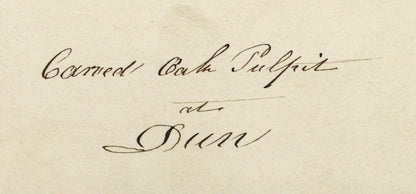 Carved Oak Pulpit
at
Dun